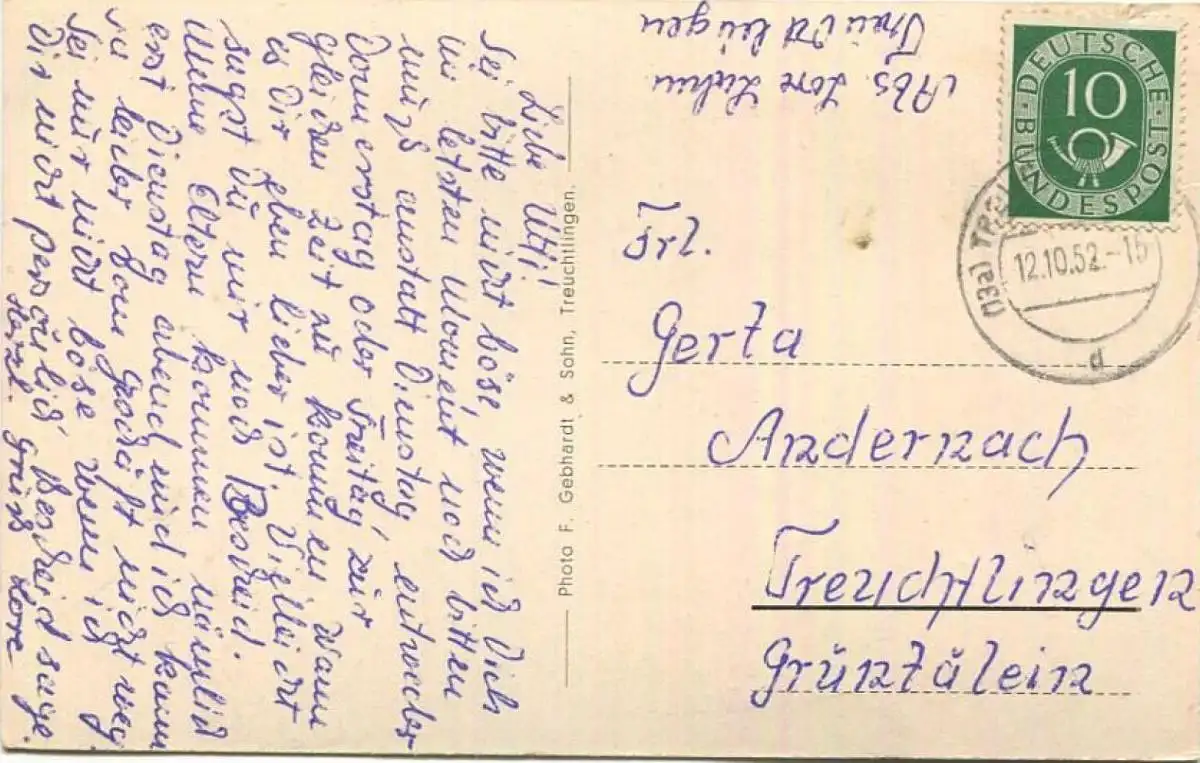 Liebe Utti!
Sei bitte nicht böse, wenn ich Dich
im letzten Moment noch bitten
muß anstatt Dienstag, entweder
Donnerstag oder Freitag, zur
gleichen Zeit zu kommen. Wann
es Dir eben lieber ist. Villeicht
sagst Du mir noch Bescheid.
Meine Eltern kommen nämlich
erst Dienstag abend und ich kann
ja leider vom Geschäft nicht weg.
Sei mir nicht böse wenn ich
Dir nicht persönlich Bescheid sage.
Herzl. Grüße Lore
Photo F. Gebhardt & Sohn, Treuchtlingen.
Abs. Lore
Treuchtlingen
DEUTSCHE BUNDESPOST
10
12.10.52.-15
d
Frl.
Gerta
Andernach
Treuchtlingen
Grüntälein